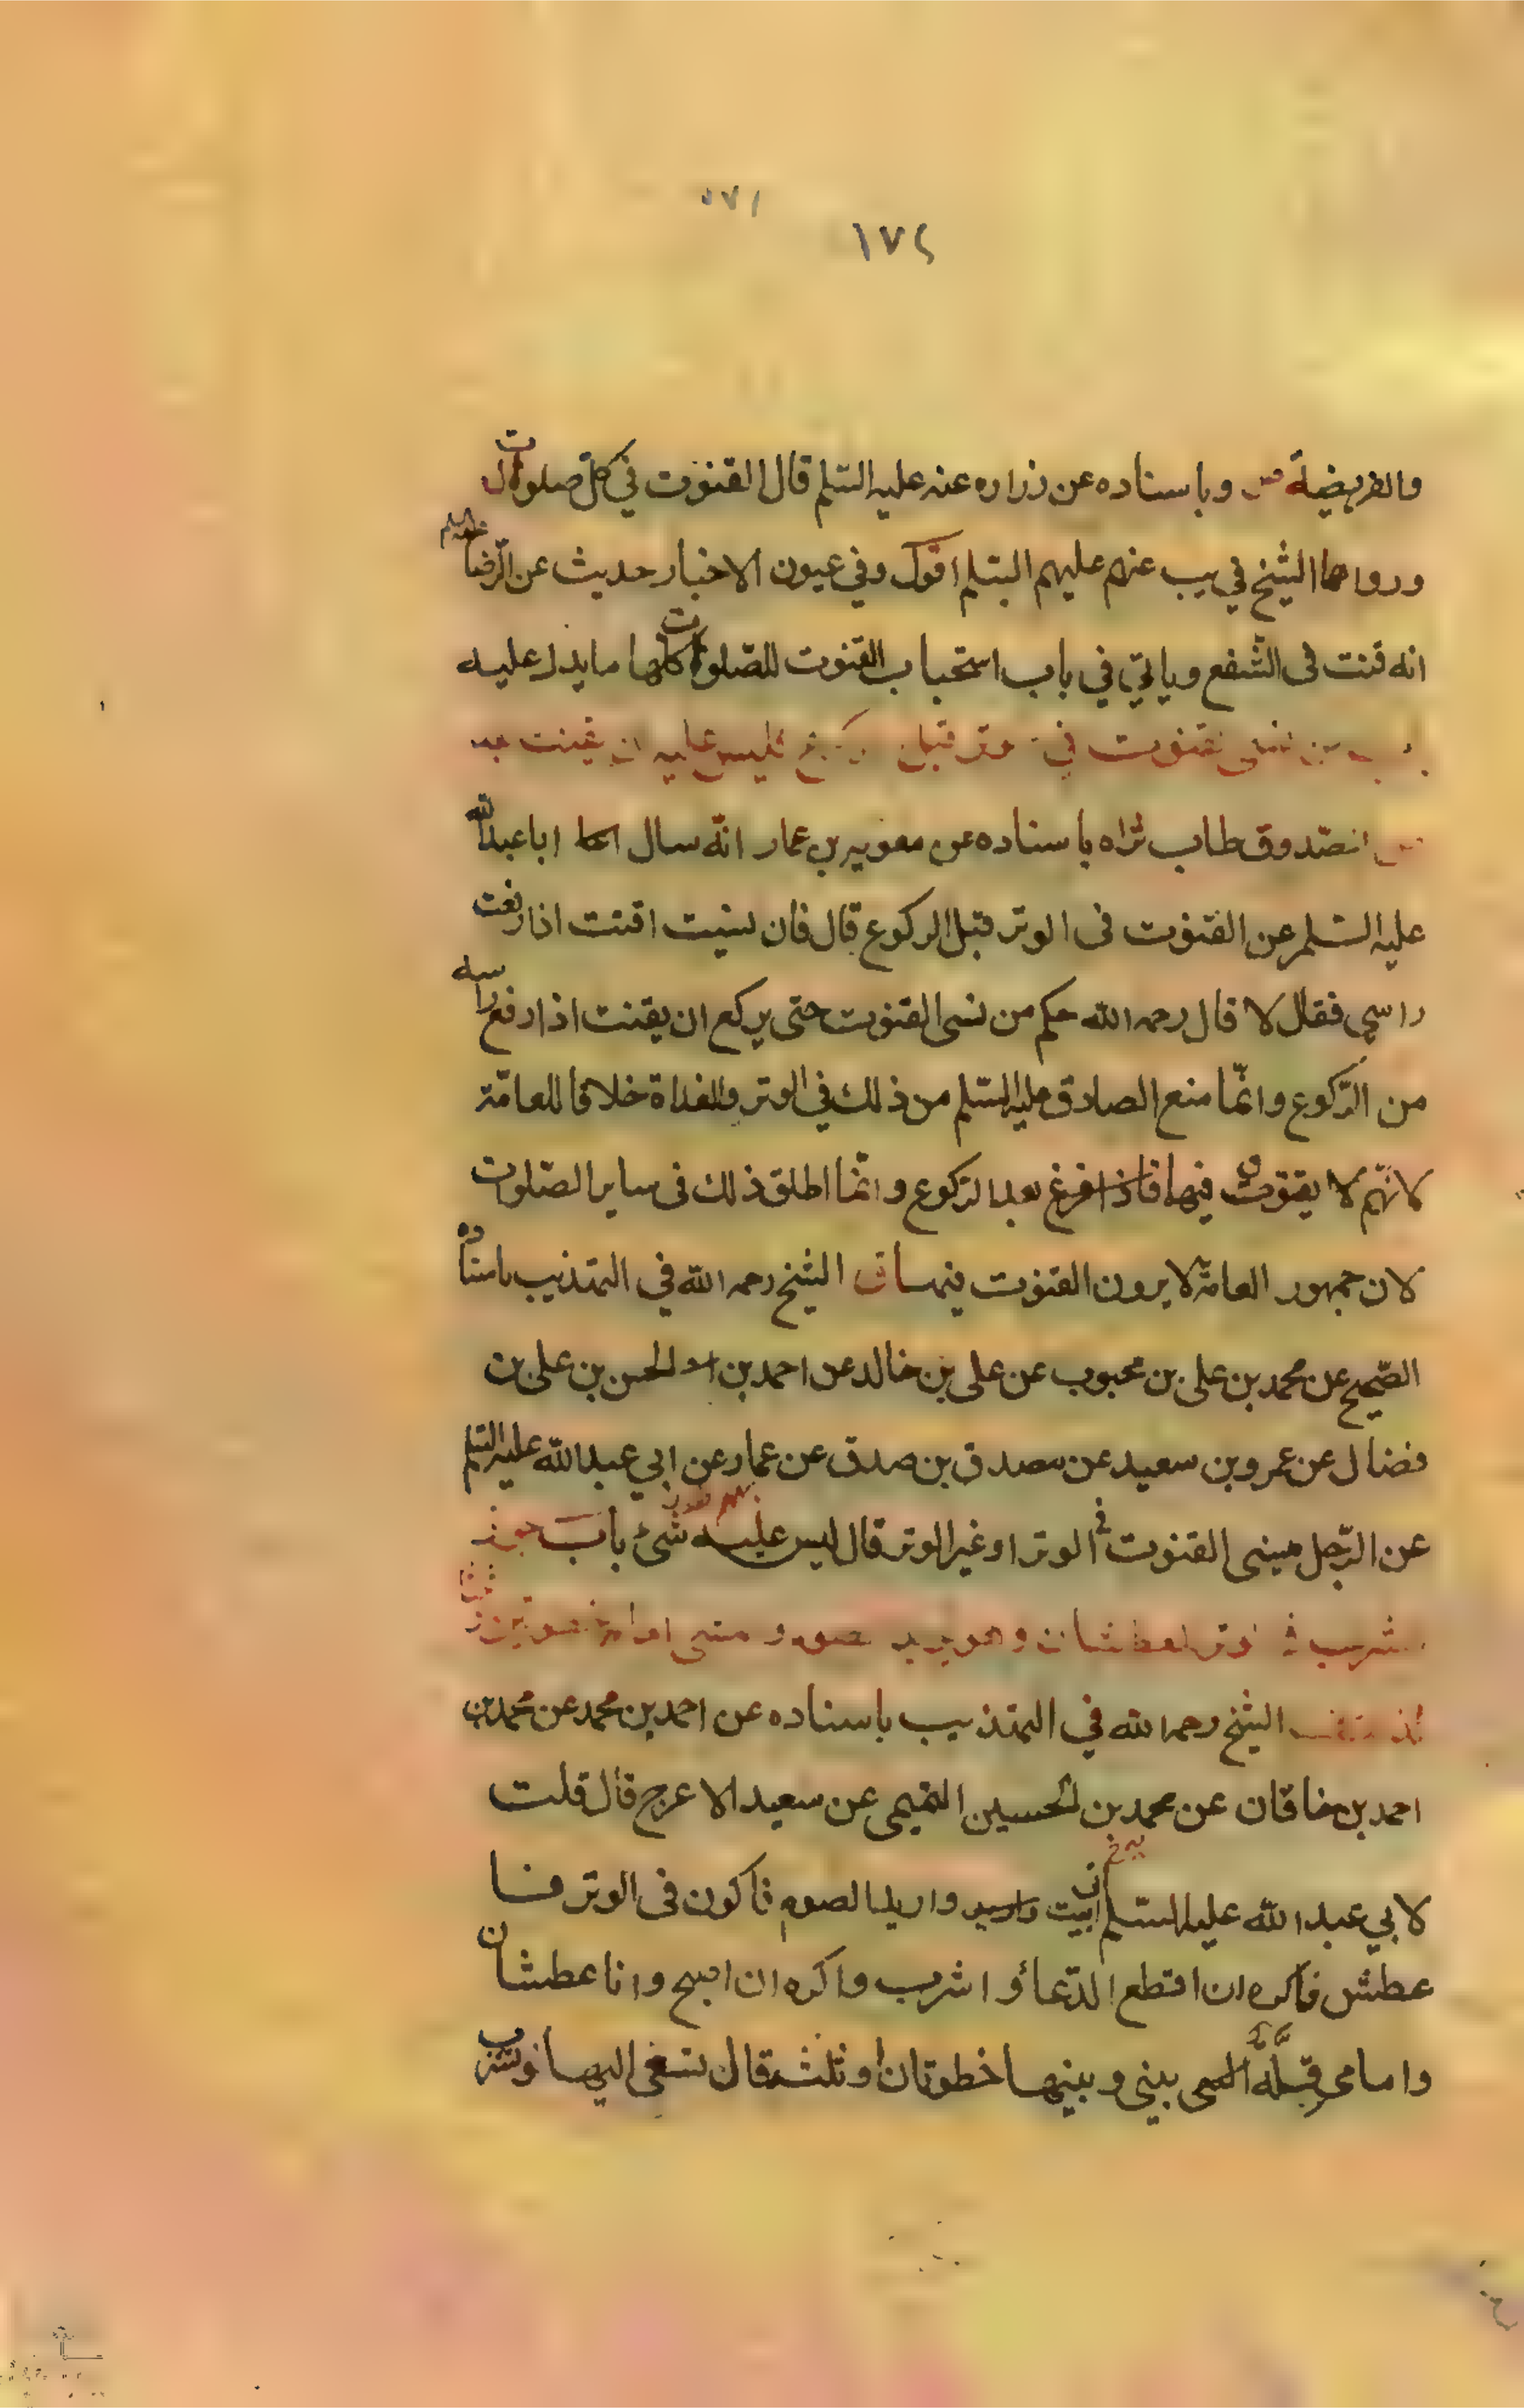 ١٧١
١٧٢
والفريضة ص وباسناده عن زراره عنه عليه السلم قال القنوت في كل صلوات ال
ورواهما الشيخ في يب عنهم عليهم السلم اقول وفي عيون الاخبار حديث عن الرضا عليه السلم
انه قنت في الشفع وياتي في باب استحباب القنوت للصلوات كلها ما يدل عليه
من نسى القنوت في قبل فليس عليه ان يقنت بعد
الصدوق طاب ثراه باسناده عن معوية بن عمار انّه سال ابا عبد الله
عليه السلم عن القنوت فى الوتر قبل الركوع قال فان نسيت اقنت اذا رفعت
راسي فقال لا قال رحمه الله حكم من نسى القنوت حتى يركع ان يقنت اذا رفع راسه
من الركوع وانّما منع الصادق عليه السلم من ذلك في الوتر والغداة خلافا للعامّة
لانّهم يقنتون فيها بعد الركوع وانّما اطلق ذلك فى ساير الصّلوات
لان جمهور العامّة لا يرون القنوت فيها ق الشيخ رحمه الله في التهذيب باسناده
الصّحيح عن محمد بن على بن محبوب عن على بن خالد عن احمد بن الحسن بن على بن
فضال عن عمرو بن سعيد عن مصدق بن صدق عن عمار عن ابي عبد الله عليه السلم
عن الرّجل ينسى القنوت في الوتر او غير الوتر قال ليس عليه شئ باب جواز
الشرب في الوتر لعطشان وهو يريد الصوم ومشى امامه خطوتين او ثلثا
الشيخ رحمه الله في التهذيب باسناده عن احمد بن محمد عن محمد بن
احمد بن خاقان عن محمد بن الحسين التميمى عن سعيد الاعرج قال قلت
لابي عبد الله عليه السلم انى ابيت واريد الصوم فاكون فى الوتر فا
عطش فاكره ان اقطع الدّعاء واشرب واكره ان اصبح وانا عطشان
وامامى قلّة بيني وبينها خطوتان او ثلثة قال تسعى اليها وتشرب